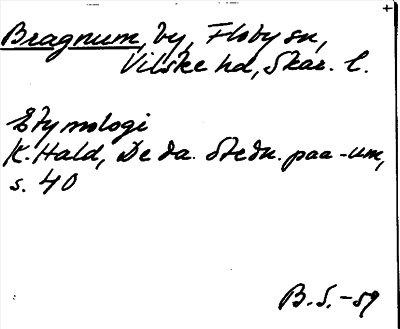 Bragnum, by, Floby sn,
Vilske hd, Skar. l.
Etymologi
K. Hald, De da. stedn. paa -um,
s. 40
B.S.-59